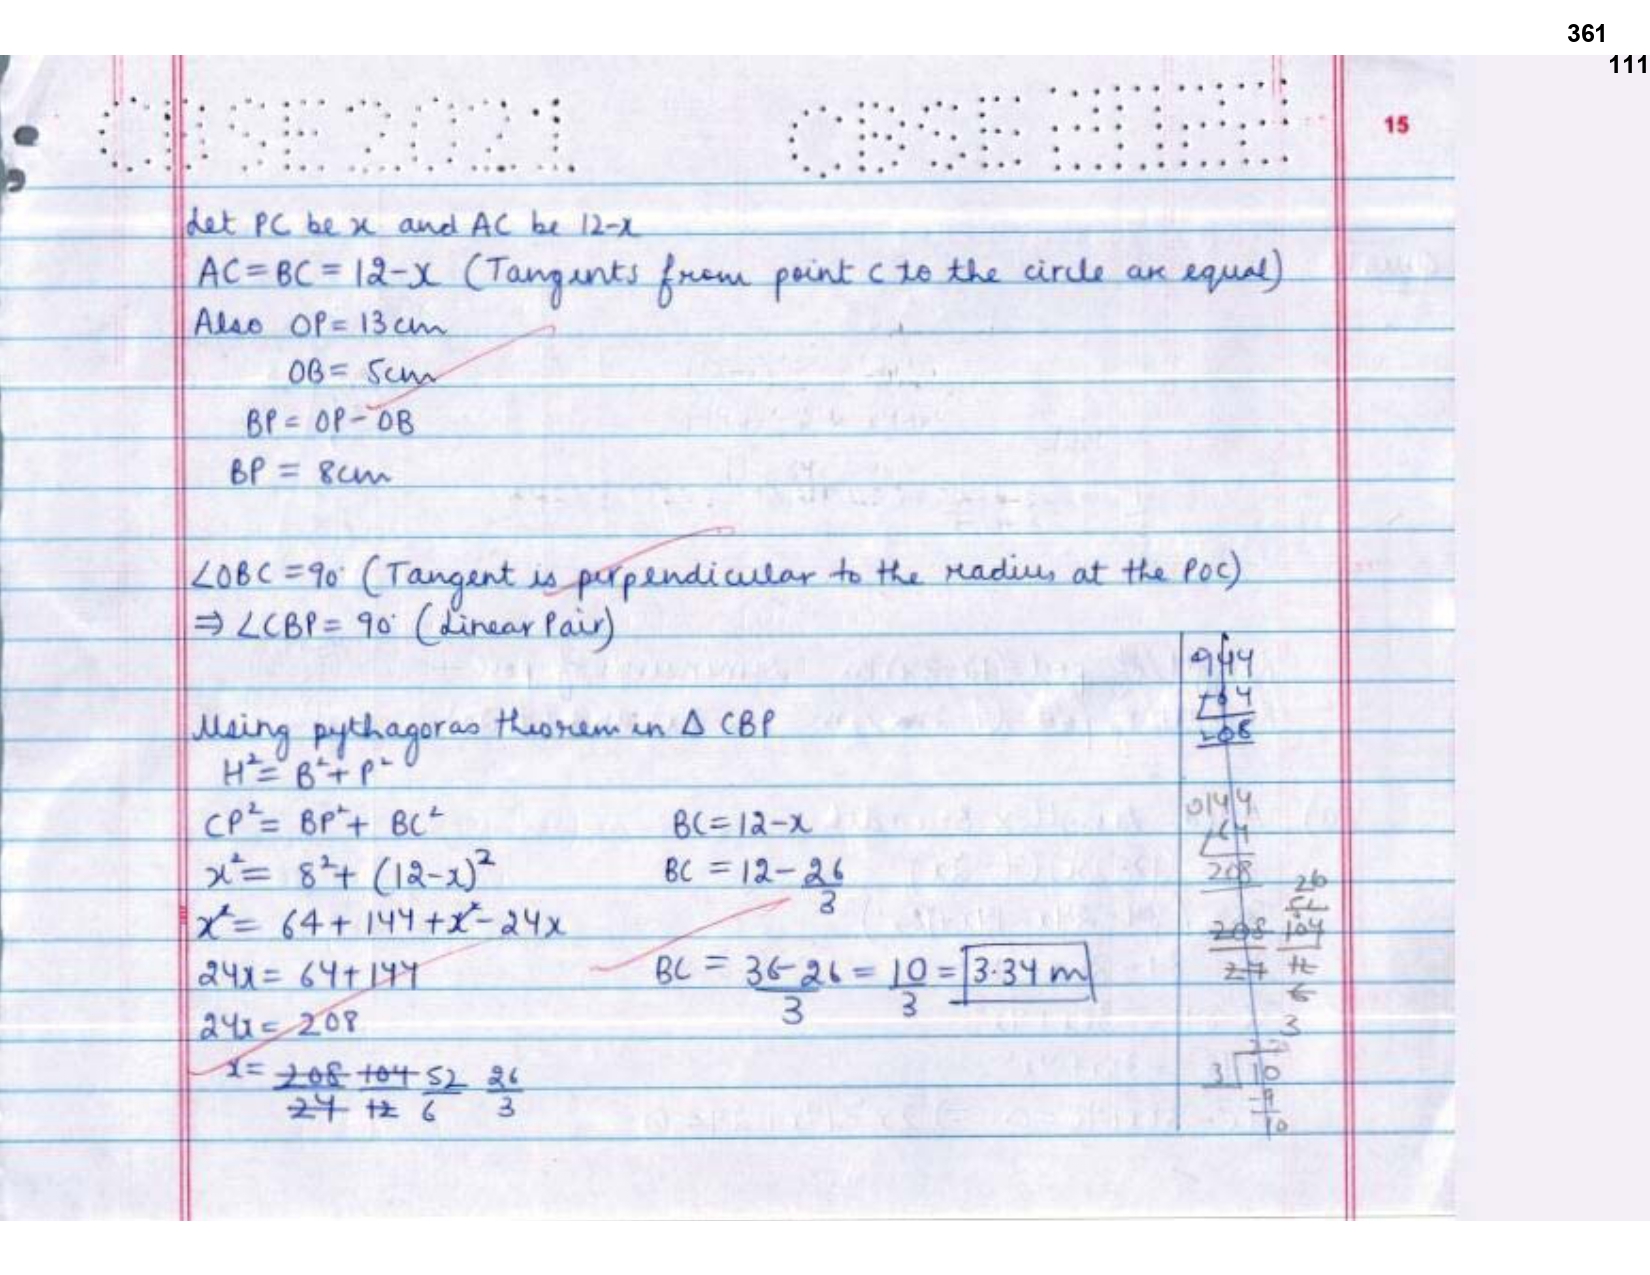 361
111
CBSE 2021 CBSE 2021
15
Let PC be x and AC be 12-x
AC = BC = 12-x (Tangents from point C to the circle are equal)
Also OP = 13 cm
OB = 5cm
BP = OP - OB
BP = 8cm
∠OBC = 90° (Tangent is perpendicular to the radius at the POC)
⇒ ∠CBP = 90° (Linear Pair)
Using pythagoras theorem in Δ CBP
H² = B² + P²
CP² = BP² + BC²
x² = 8² + (12-x)²
x² = 64 + 144 + x² - 24x
24x = 64 + 144
24x = 208
x = 208/24 104/12 52/6 26/3
BC = 12-x
BC = 12 - 26/3
BC = 36-26/3 = 10/3 = 3.34 m
144
64
208
0144
64
208
208
24
26
52
104
12
6
3
3 10
-9
10